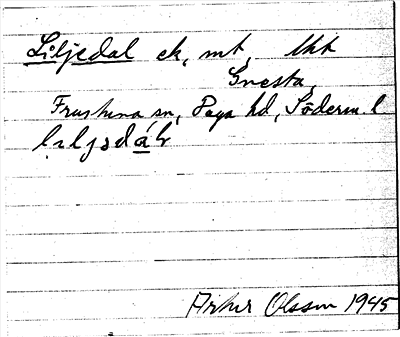 Liljedal ek, mt,
Gnesta,
Frustuna sn, Daga hd, Söderm. l.
lıljedá̲l
Artur Olsson 1945